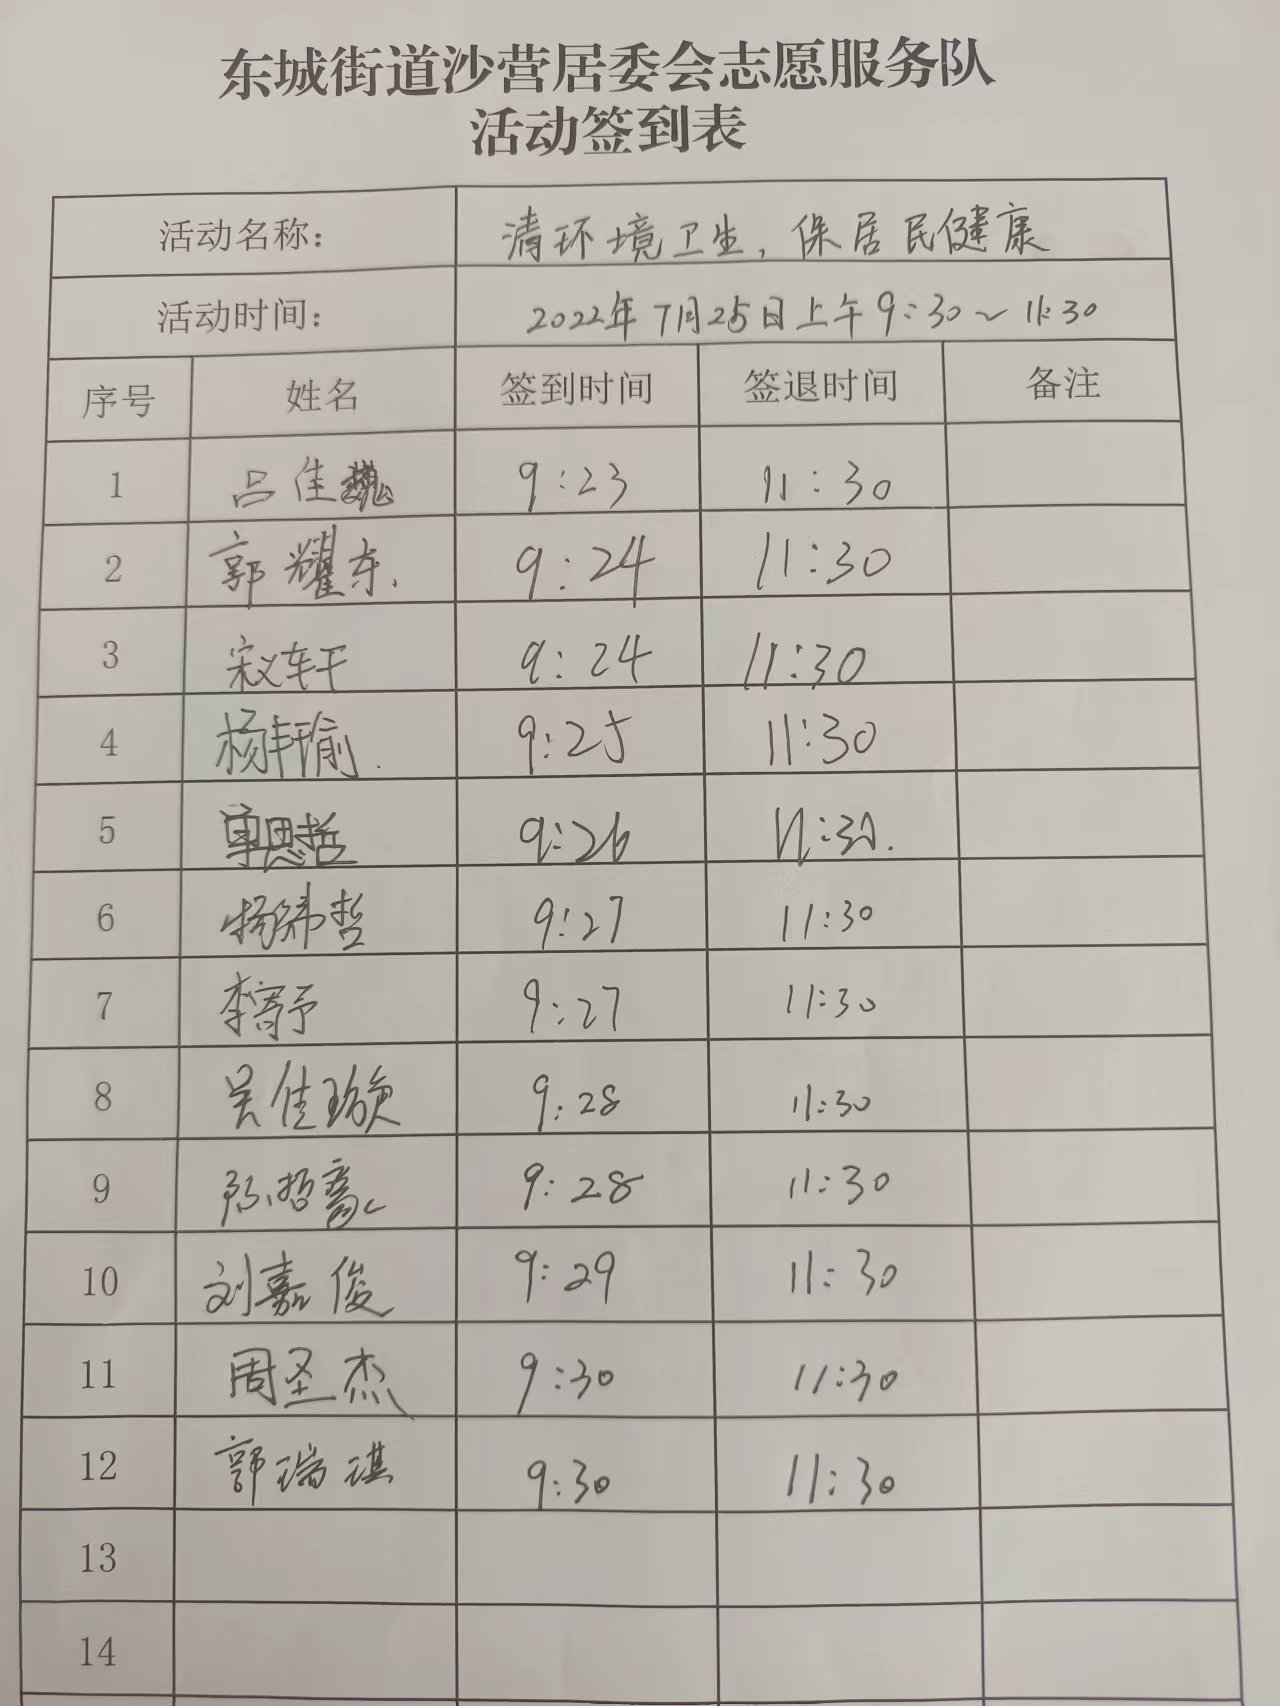 东城街道沙营居委会志愿服务队
活动签到表
活动名称： 清环境卫生，保居民健康
活动时间： 2022年7月25日上午9:30~11:30
序号 姓名 签到时间 签退时间 备注
1 吕佳 9:23 11:30
2 郭耀东. 9:24 11:30
3 宋义轩 9:24 11:30
4 杨轩瑜. 9:25 11:30
5 单思哲 9:26 11:30.
6 哲 9:27 11:30
7 李 9:27 11:30
8 吴佳 9:28 11:30
9 陈哲 9:28 11:30
10 刘嘉俊 9:29 11:30
11 周圣杰 9:30 11:30
12 郭瑞琪 9:30 11:30
13
14